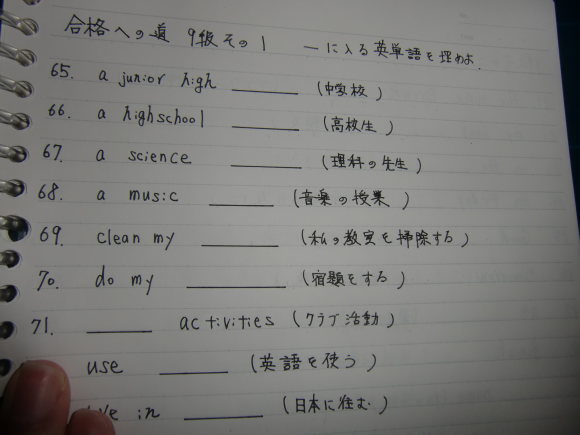 合格への道 9級その1 ーに入る英単語を埋めよ.
65. a junior high ______ (中学校)
66. a highschool ______ (高校生)
67. a science ______ (理科の先生)
68. a music ______ (音楽の授業)
69. clean my ______ (私の教室を掃除する)
70. do my ______ (宿題をする)
71. ______ activities (クラブ活動)
use ______ (英語を使う)
in ______ (日本に住む)